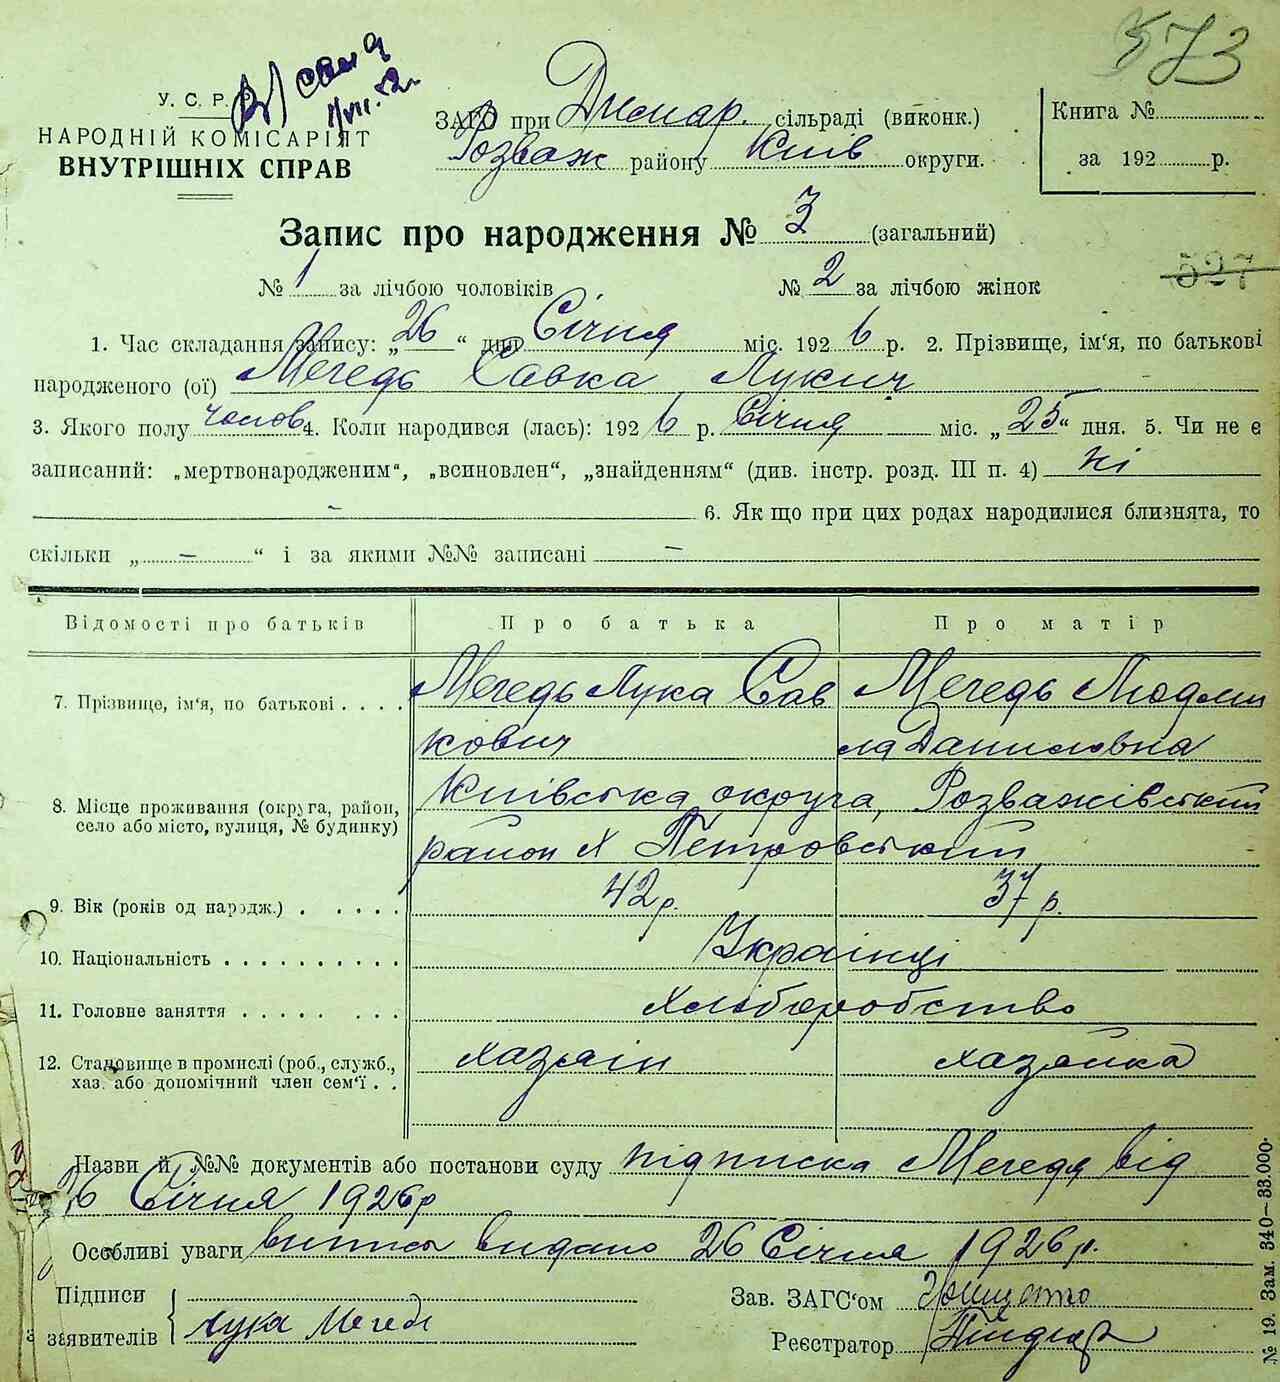 573
У. С. Р. Р.
НАРОДНІЙ КОМІСАРІЯТ
ВНУТРІШНІХ СПРАВ
ЗАГС при сільраді (виконк.)
Розваж району Київ округи.
Книга №
за 192 р.
Запис про народження № 3 (загальний)
527
№ 1 за лічбою чоловіків № 2 за лічбою жінок
1. Час складання запису: „26“ дня Січня міс. 1926 р. 2. Прізвище, ім'я, по батькові
народженого (ої) Мегедь Савка Лукич
3. Якого полу чолов 4. Коли народився (лась): 1926 р. Січня міс. „25“ дня. 5. Чи не є
записаний: „мертвонародженим“, „всиновлен“, „знайденням“ (див. інстр. розд. III п. 4) ні
– 6. Як що при цих родах народилися близнята, то
скільки „ – “ і за якими №№ записані –
Відомості про батьків Про батька Про матір
7. Прізвище, ім'я, по батькові Мегедь Лука Сав Мегедь Людми
кович ла Даниловна
8. Місце проживання (округа, район, Київська округа, Розважівський
село або місто, вулиця, № будинку) район х Петровський
9. Вік (років од народж.) 42 р. 37 р.
10. Національність Українці
11. Головне заняття Хліборобство
12. Становище в промислі (роб., служб., хазяїн хазяйка
хаз. або допомічний член сем'ї
Назви й №№ документів або постанови суду підписка Мегедя від
26 Січня 1926 р
Особливі уваги видано 26 Січня 1926 р.
Підписи
заявителів Лука Мегедь
Зав. ЗАГС'ом
Реєстратор
№ 19. Зам. 340—33.000.